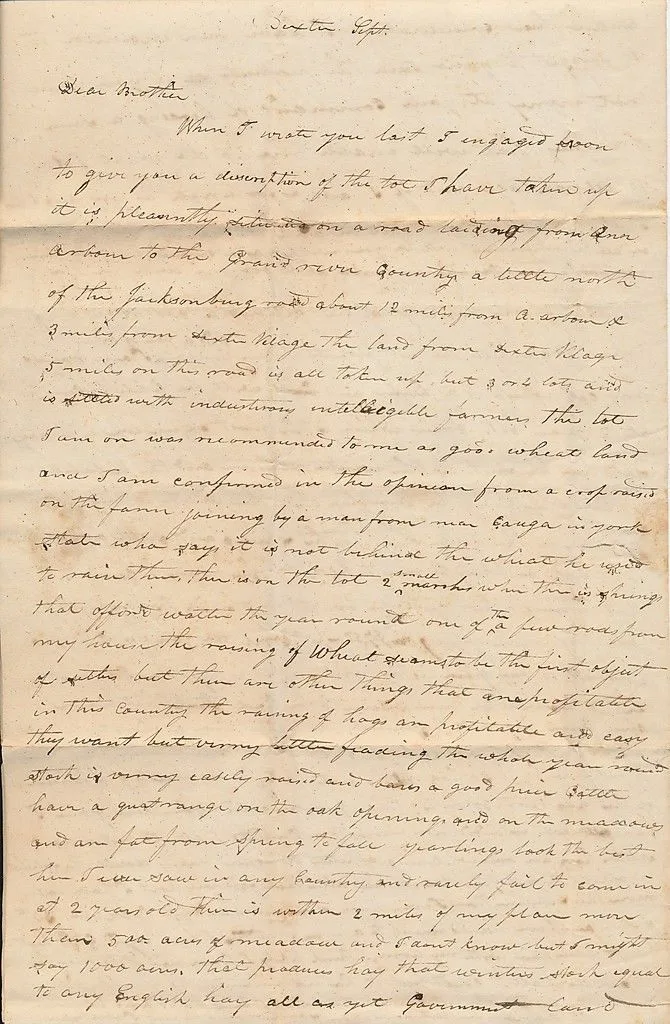 Dexter Sept.
Dear Brother
When I wrote you last I engaged soon
to give you a discription of the lot I have taken up
it is pleasently situated on a road laiding from Ann
arbour to the Grand river Country a little north
of the Jacksonburg road about 12 miles from A. arbour &
3 miles from Dexter Vilage the land from Dexter Vilage
5 miles on this road is all taken up but 3 or 4 lots and
is settled with industrious intelegible farmers the lot
I am on was recommended to me as good wheat land
and I am confirmed in the opinion from a crop raised
on the farm joining by a man from near Cauga in york
state who says it is not behind the wheat he used
to rais there, ther is on the lot 2 small marshes wher ther is springs
that afford watter the year round one of the a few rods from
my house the raising of Wheat seams to be the first object
of setlers but ther are other things that are profitable
in this Country the raising of hogs are profitable and easy
they want but verry little feading the whole year round
stock is verry easily raised and bears a good price Cattle
have a great range on the oak openings and on the meadows
and are fat from Spring to fall yearlings look the best
her I ever saw in any Country and rarely fail to come in
at 2 years old ther is within 2 miles of my place more
than 500 acres of meadow and I dont know but I might
say 1000 acres. that produces hay that winters stock equal
to any English hay all as yet Government Land